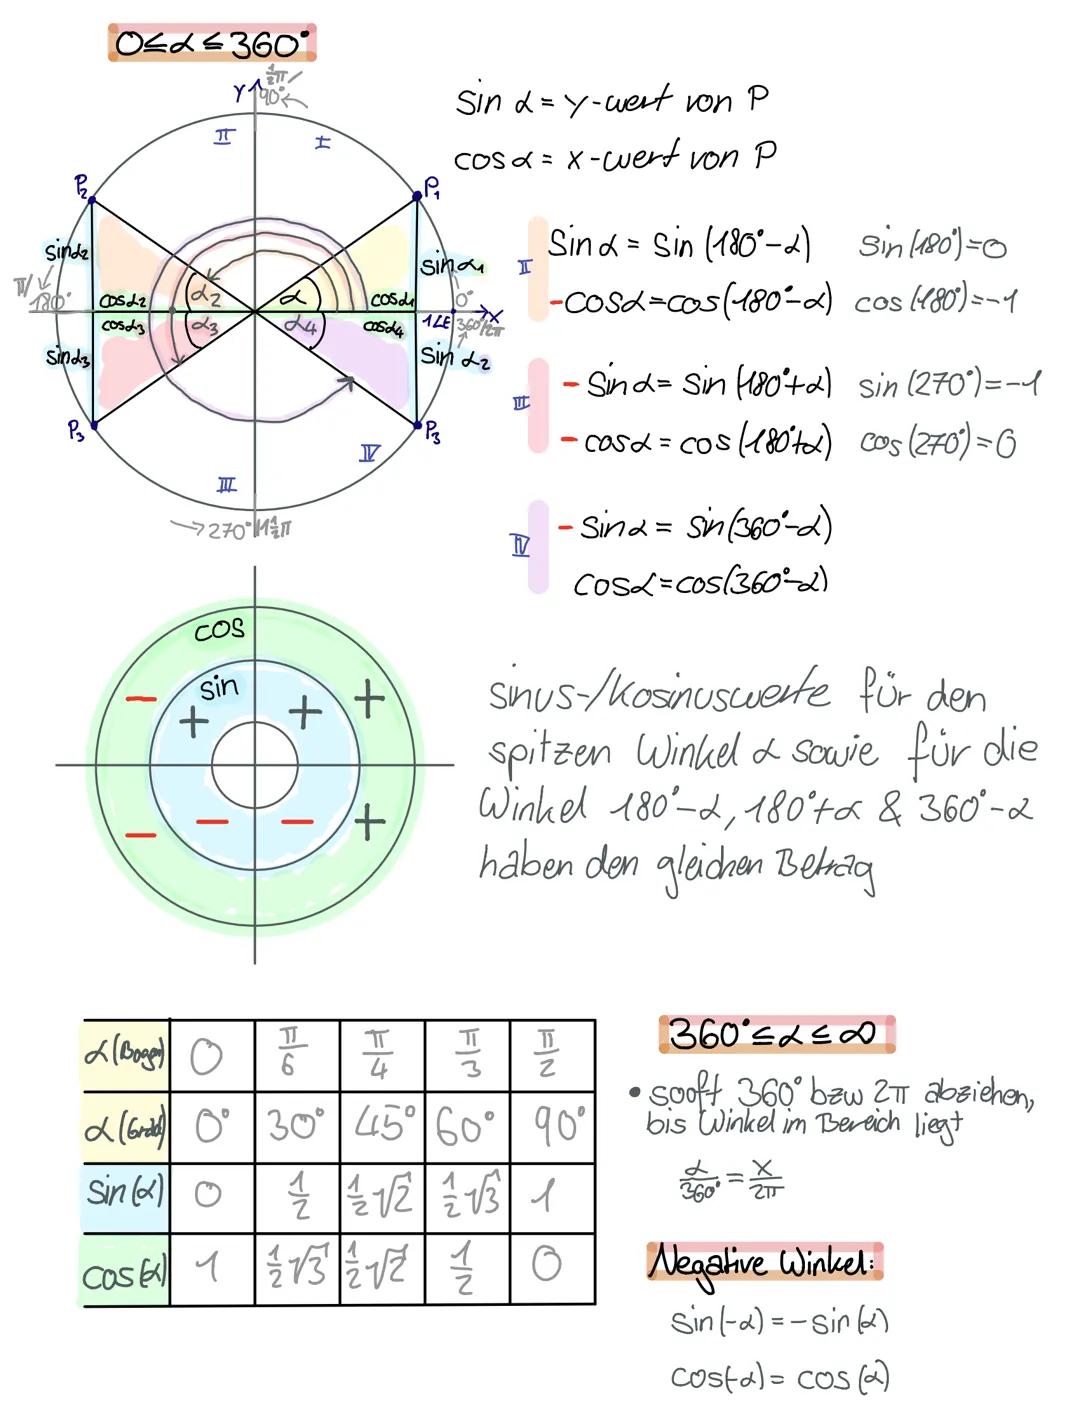 0≤α≤360°
½π/
90°
Y
II
I
P₂
P₁
sinα₂
sinα₁
π/
180°
cosα₂
α₂
α
cosα₁
0°
X
cosα₃
α₃
α₄
cosα₄
1LE
360°/2π
sinα₃
sin α₂
P₃
P₃
IV
III
270°/1½π
sin α = y-wert von P
cos α = x-wert von P
II
sin α = sin (180°-α) sin(180°)=0
-cosα=cos(180°-α) cos(180°)=-1
III
- sinα = sin (180°+α) sin (270°)=-1
- cosα = cos (180°+α) cos(270°)=0
IV
- sinα = sin(360°-α)
cosα=cos(360°-α)
cos
sin
- + + +
- - - +
sinus-/Kosinuswerte für den
spitzen Winkel α sowie für die
Winkel 180°-α, 180°+α & 360°-α
haben den gleichen Betrag
α(Bogen) 0 π/6 π/4 π/3 π/2
α(Grad) 0° 30° 45° 60° 90°
sin(α) 0 ½ ½√2 ½√3 1
cos(α) 1 ½√3 ½√2 ½ 0
360°≤α≤∞
• sooft 360° bzw 2π abziehen,
bis Winkel im Bereich liegt
α/360° = x/2π
Negative Winkel:
sin(-α) = -sin(α)
cos(-α) = cos(α)